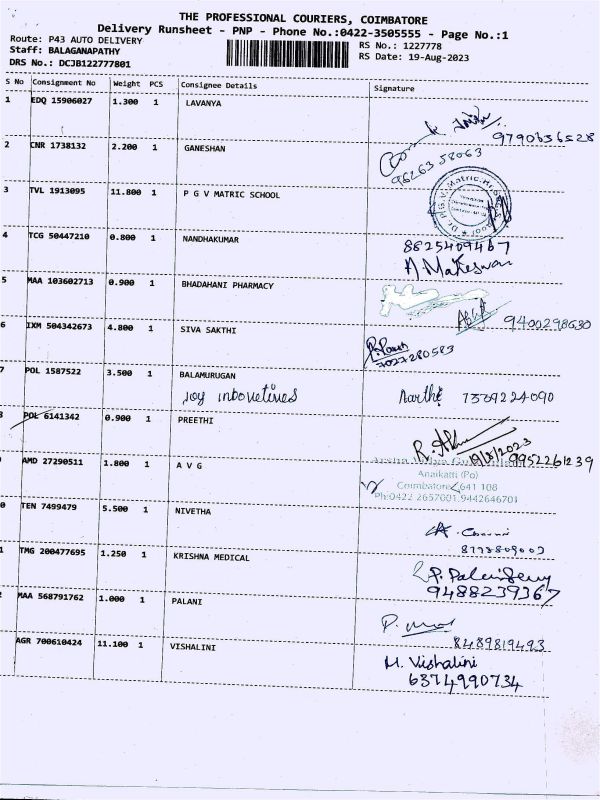 THE PROFESSIONAL COURIERS, COIMBATORE
Delivery Runsheet - PNP - Phone No.:0422-3505555 - Page No.:1
Route: P43 AUTO DELIVERY
RS No.: 1227778
Staff: BALAGANAPATHY
RS Date: 19-Aug-2023
DRS No.: DCJB122777801
S No Consignment No Weight PCS Consignee Details Signature
1 EDQ 15906027 1.300 1 LAVANYA
9790636528
2 CNR 1738132 2.200 1 GANESHAN
9626358063
3 TVL 1913095 11.800 1 P G V MATRIC SCHOOL
4 TCG 50447210 0.800 1 NANDHAKUMAR
8825409467
5 MAA 103602713 0.900 1 BHADAHANI PHARMACY
6 IXM 504342673 4.800 1 SIVA SAKTHI
9400298630
7027280583
7 POL 1587522 3.500 1 BALAMURUGAN
Joy inbovetives Aarthi 7309224090
POL 6141342 0.900 1 PREETHI
19/8/2023
9952261239
AMD 27290511 1.800 1 A V G
Anaikatti (Po)
Coimbatore 641 108
Ph:0422 2657001,9442646701
0 TEN 7499479 5.500 1 NIVETHA
1 TMG 200477695 1.250 1 KRISHNA MEDICAL
9488239367
2 MAA 568791762 1.000 1 PALANI
8489819493
AGR 700610424 11.100 1 VISHALINI
M. Vishalini
6374990734